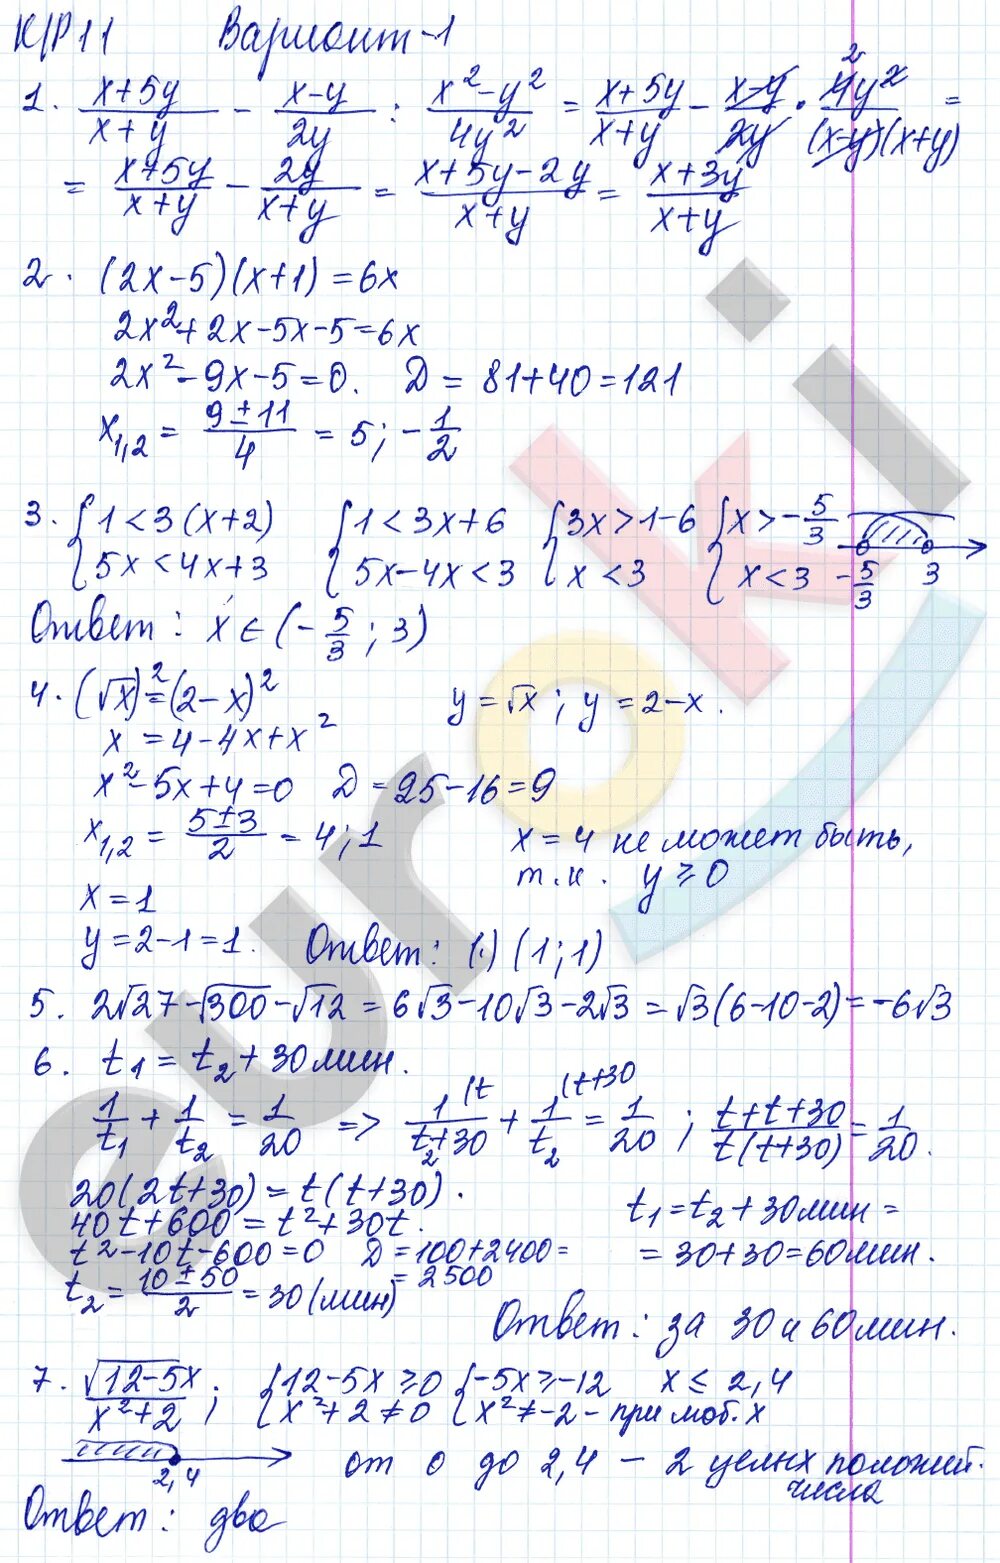 К/Р 11 Вариант-1
1. (x+5y)/(x+y) - (x-y)/(2y) : (x²-y²)/(4y²) = (x+5y)/(x+y) - (x-y)/(2y) · (4y²)/((x-y)(x+y)) = 2
= (x+5y)/(x+y) - (2y)/(x+y) = (x+5y-2y)/(x+y) = (x+3y)/(x+y)
2. (2x-5)(x+1)=6x
2x²+2x-5x-5=6x
2x²-9x-5=0. Д = 81+40=121
x₁,₂ = (9±11)/4 = 5; -1/2
3. {1<3(x+2) {1<3x+6 {3x>1-6 {x>-5/3
{5x<4x+3 {5x-4x<3 {x<3 {x<3 -5/3 3
Ответ: x∈(-5/3; 3)
4. (√x)²=(2-x)² y=√x; y=2-x.
x=4-4x+x²
x²-5x+4=0 Д=25-16=9
x₁,₂ = (5±3)/2 = 4; 1 x=4 не может быть,
т.к. y≥0
x=1
y=2-1=1. Ответ: (·) (1;1)
5. 2√27-√300-√12=6√3-10√3-2√3=√3(6-10-2)=-6√3
6. t₁=t₂+30мин.
1/t₁ + 1/t₂ = 1/20 => 1(t/(t₂+30) + 1(t+30/t₂ = 1/20; (t+t+30)/(t(t+30)) = 1/20.
20(2t+30)=t(t+30).
40t+600=t²+30t. t₁=t₂+30мин=
t²-10t-600=0 Д=100+2400= =30+30=60мин.
t₂=(10±50)/2=30(мин) =2500
Ответ: за 30 и 60мин.
7. √(12-5x)/(x²+2); {12-5x≥0 {-5x≥-12 x≤2,4
{x²+2≠0 {x²≠-2 - при люб. x
2,4 от 0 до 2,4 - 2 целых положит.
числа
Ответ: два
euroki